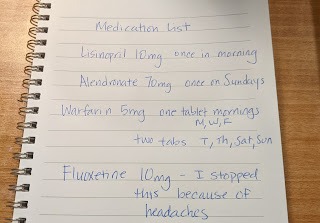 Medication List
Lisinopril 10mg once in morning
Alendronate 70mg once on Sundays
Warfarin 5mg one tablet mornings
M, W, F
two tabs T, Th, Sat, Sun
Fluoxetine 10mg - I stopped
this because of
headaches